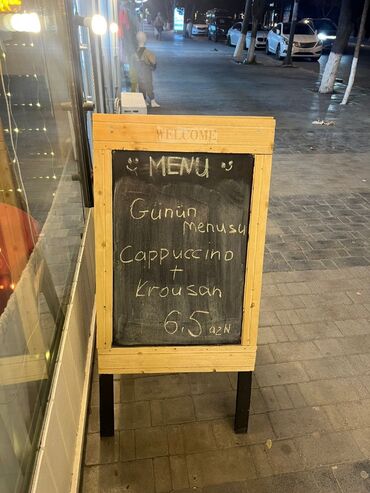 WELCOME
MENU
Günün
menusu
Cappuccino
+
Krousan
6,5 azN